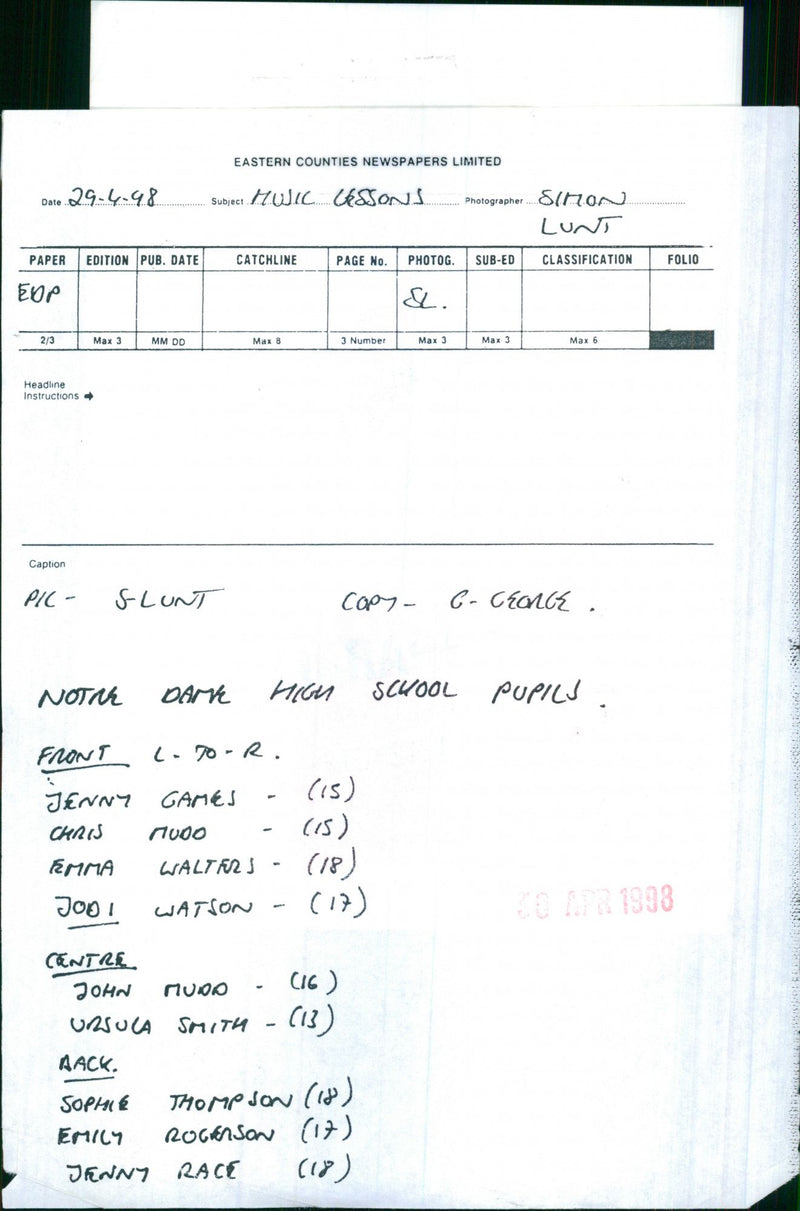 EASTERN COUNTIES NEWSPAPERS LIMITED
Date 29-4-98 Subject MUSIC LESSONS Photographer SIMON
LUNT
PAPER EDITION PUB. DATE CATCHLINE PAGE No. PHOTOG. SUB-ED CLASSIFICATION FOLIO
EDP SL.
2/3 Max 3 MM DD Max 8 3 Number Max 3 Max 3 Max 6
Headline
Instructions ➔
Caption
PIC - S-LUNT COPY - G-GEORGE.
NOTRE DAME HIGH SCHOOL PUPILS.
FRONT L-TO-R.
JENNY GAMES - (15)
CHRIS MUDD - (15)
EMMA WALTERS - (18)
JODI WATSON - (17)
30 APR 1998
CENTRE
JOHN MUDD - (16)
URSULA SMITH - (13)
BACK.
SOPHIE THOMPSON (18)
EMILY ROGERSON (17)
JENNY RACE (18)